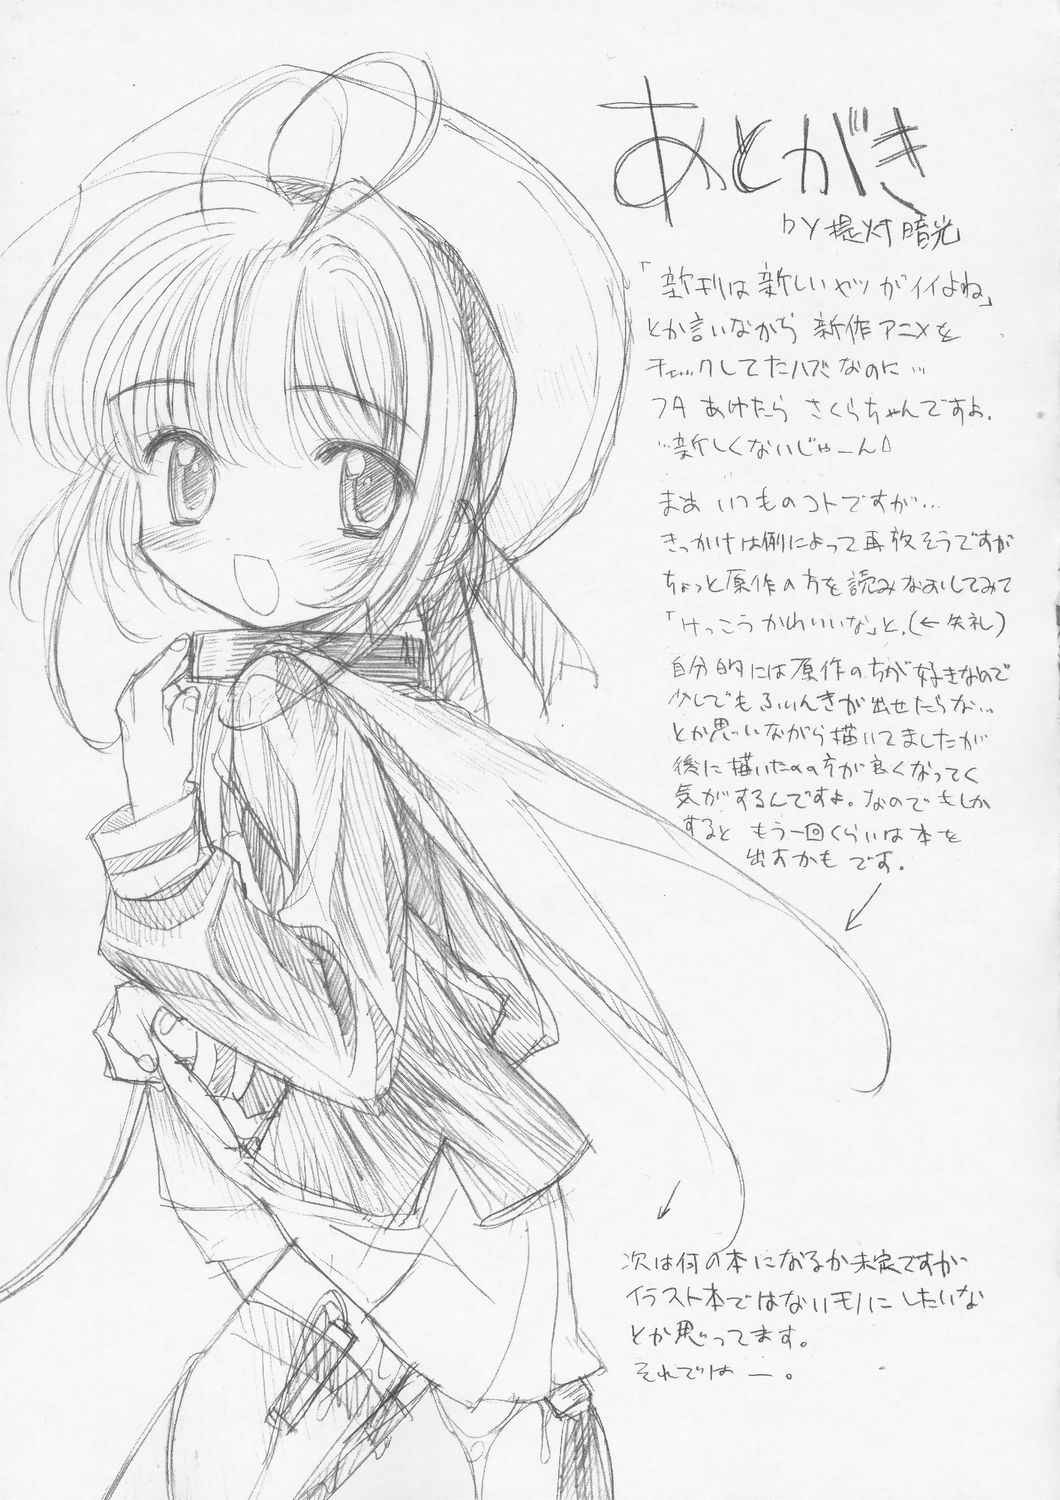 あとがき
by 提灯暗光
「新刊は新しいヤツがイイよね」
とか言いながら 新作アニメを
チェックしてたハズなのに…
フタあけたら さくらちゃんですよ.
…新しくないじゃーん
まぁ いつものコトですが…
きっかけは例によって再放そうですが
ちょっと原作の方を読みなおしてみて
「けっこうかわいいな」と.(←失礼)
自分的には原作のちが好きなので
少しでもふいんきが出せたらな…
とか思いながら描いてましたが
後に描いたのの方が良くなってく
気がするんですよ。なのでもしか
すると もう一回くらいは本を
出すかも です.
次は何の本になるか未定ですが
イラスト本ではないモノにしたいな
とか思ってます。
それではー。